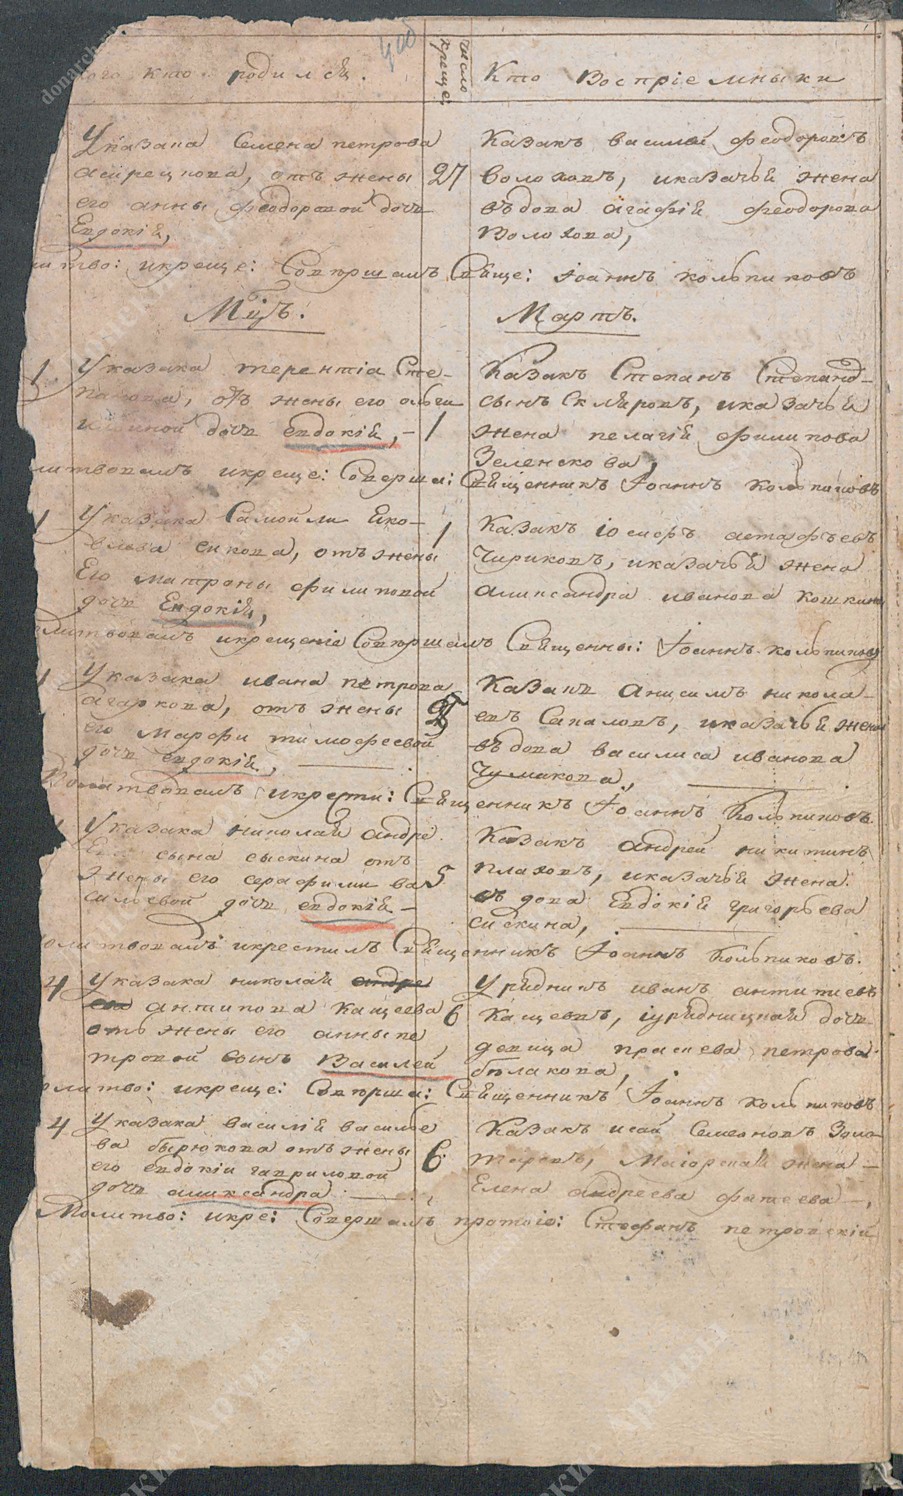 400
кого кто родился.
число креще:
Кто Восприемники
Указака Семена петрова
от жены
его анны феодоровой дочь
Евдокия,
27
Казакъ василий феодоровъ
Волоховъ, иказачья жена
въдова агафия феодорова
Волохова,
литво: икреще: Совершалъ Свяще: Iоаннъ Колпиковъ
Мцъ. Мартъ.
1
Указака терентiа Сте-
панова, отъ жены его ольги
дочь евдокия, –
1
Казакъ Степанъ Степанов-
сынъ Скляровъ, иказачья
жена пелагия филипова
Зеленскова,
литвовалъ икреще: Соверша: Священникъ Iоаннъ Колпиковъ
1
Указака Самойли Яко-
влева сикова, отъ жены
Его матроны филиповой
дочь Евдокия,
1
Казакъ Iосифъ астафьевъ
Чириковъ, иказачья жена
александра иванова кошкина
литвовалъ икрещенiе Совершалъ Священни: Iоаннъ Колпиковъ
Указака ивана петрова
агаркова, отъ жены
его Марфы тимофеевой
дочь евдокия,
Казакъ анисимъ никола-
евъ Сапаловъ, иказачья жена
въдова василиса иванова
Чумакова,
Молитвовалъ икрести: Священникъ Iоаннъ Колпиковъ.
Указака николай андре
сына сыскина отъ
жены его серафимы ва
сильевой дочь евдокия –
5
Казакъ андрей никитинъ
плаховъ, иказачья жена
въдова Евдокия григорьева
сискина,
молитвовалъ икрестилъ Священникъ Iоаннъ Колпиковъ.
4
Указака николай андре
ева антипова Кащеева
отъ жены его анны пе
тровой сынъ Василей
6
Урядникъ иванъ антипиевъ
Кащеевъ, iурядницкая дочь
девица праскева петрова
белакова,
олитво: икреще: Соверша: Священникъ Iоаннъ Колпиковъ
4
Указака василiя василье
ва бирюкова отъ жены
его евдокии гавриловой
дочь александра
6
Казакъ исай Семеоновъ Золо
таревъ, Маiорская жена –
Елена андреева фатеева –,
Молитво: икре: Совершалъ протоiе: Стефанъ петровский